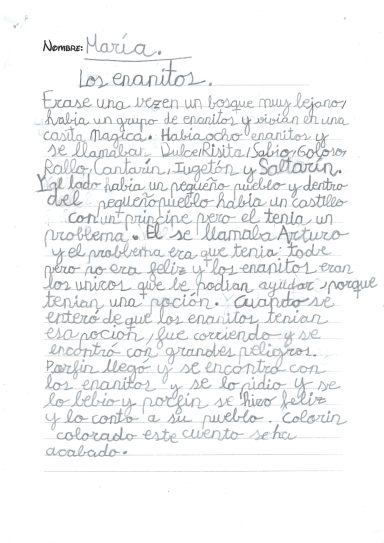 NOMBRE: María.
Los enanitos.
Erase una vez en un bosque muy lejano,
había un grupo de enanitos y vivían en una
casita Magica. Había ocho enanitos y
se llamaban Dulce, Risita, Sabio, Goloso,
Rallo, Cantarín, Jugetón y Saltarín.
Y al lado había un pequeño pueblo y dentro
del pequeño pueblo había un castillo
con un principe pero el tenía un
problema. El se llamaba Arturo
y el problema era que tenía todo
pero no era feliz y los enanitos eran
los unicos que le podían ayudar, porque
tenían una poción. Cuando se
enteró de que los enanitos tenían
esa poción, fue corriendo y se
encontró con grandes peligros.
Porfin llegó y se encontro con
los enanitos y se lo pidio y se
lo bebio y porfin se hizo feliz
y lo contó a su pueblo. Colorin
colorado este cuento se ha
acabado.